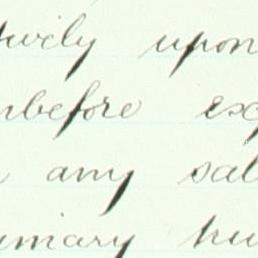 tively upon
nbefore exp
any sal
imary hu